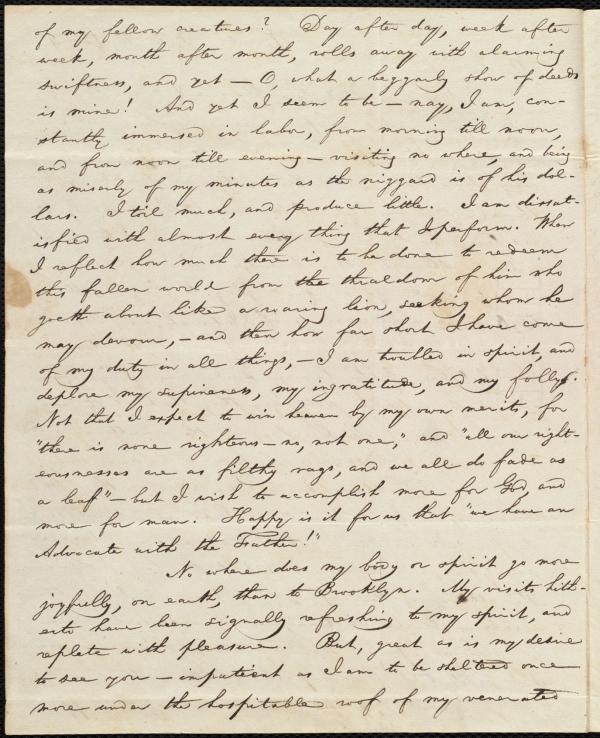 of my fellow creatures? Day after day, week after
week, month after month, rolls away with alarming
swiftness, and yet — O, what a beggarly show of deeds
is mine! And yet I seem to be — nay, I am, con-
stantly immersed in labor, from morning till noon,
and from noon till evening — visiting no where, and being
as miserly of my minutes as the niggard is of his dol-
lars. I toil much, and produce little. I am dissat-
isfied with almost every thing that I perform. When
I reflect how much there is to be done to redeem
this fallen world from the thraldom of him who
goeth about like a roaring lion, seeking whom he
may devour, — and then how far short I have come
of my duty in all things, — I am troubled in spirit, and
deplore my supineness, my ingratitude, and my folly.
Not that I expect to win heaven by my own merits, for
"there is none righteous — no, not one," and "all our right-
eousnesses are as filthy rags, and we all do fade as
a leaf" — but I wish to accomplish more for God, and
more for man. Happy is it for us that "we have an
Advocate with the Father!"
No where does my body or spirit go more
joyfully, on earth, than to Brooklyn. My visits hith-
erto have been signally refreshing to my spirit, and
replete with pleasure. But, great as is my desire
to see you — impatient as I am to be sheltered once
more under the hospitable roof of my venerated